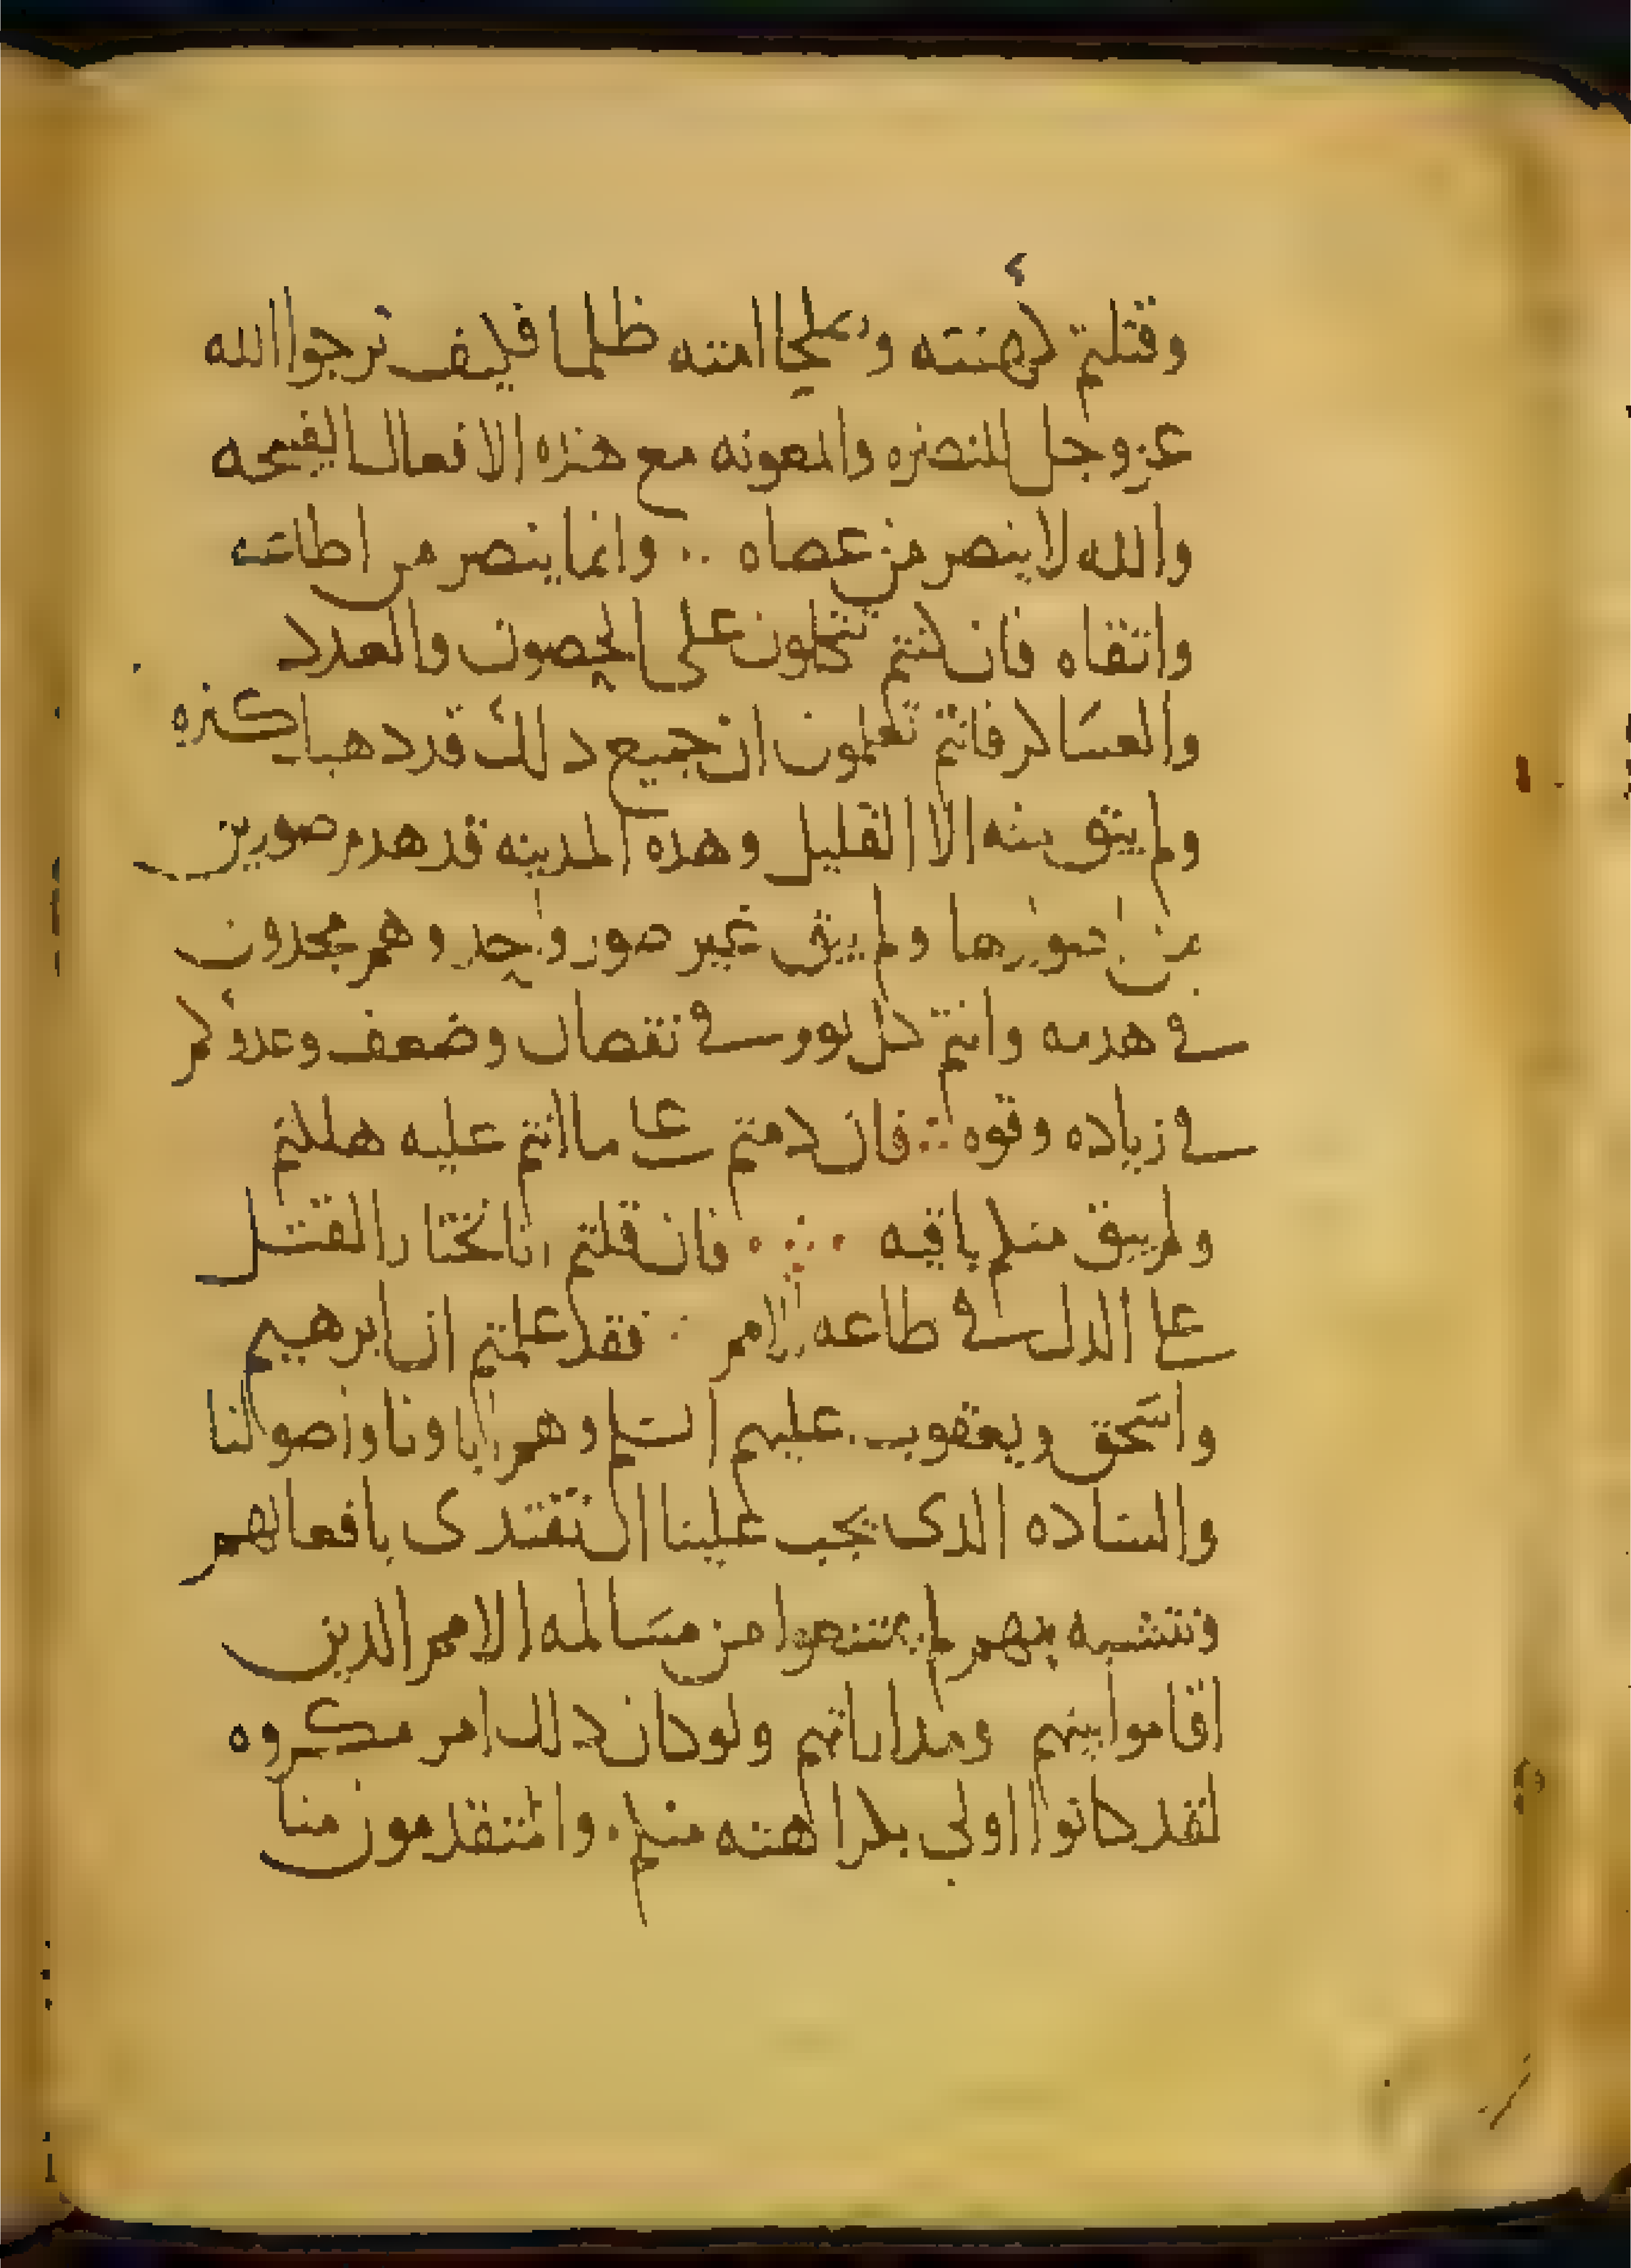 وقتلتم كهنته وصلحا امته ظلما فكيف ترجوا الله
عز وجل للنصره والمعونه مع هذه الافعال القبيحه
والله لا ينصر من عصاه ∴ وانما ينصر من اطاعه
واتقاه فان كنتم تتكلون على الحصون والعدد
والعساكر فانتم تعلمون ان جميع دلك قد دهب اكثره
ولم يبق منه الا القليل وهده المدينه قد هدم صورين
من صورها ولم يبق غير صور واحد وهم مجدون
في هدمه وانتم كل يوم في نقصان وضعف وعدوكم
في زياده وقوه ∴ فان دمتم على ما انتم عليه هلكتم
ولم يبق منكم باقيه ∴ فان قلتم انا نختار القتل
على الدل في طاعه الامم ∴ فقد علمتم ان ابرهيم
واسحق ويعقوب عليهم السلم وهم اباونا واصولنا
والساده الدى يجب علينا ان نقتدى بافعالهم
ونتشبه بهم لم يمتنعوا من مسالمه الامم الدين
اقاموا بينهم ومداراتهم ولو كان دلك امر مكروه
لقد كانوا اولى بكراهته منكم. والمتقدمون منا